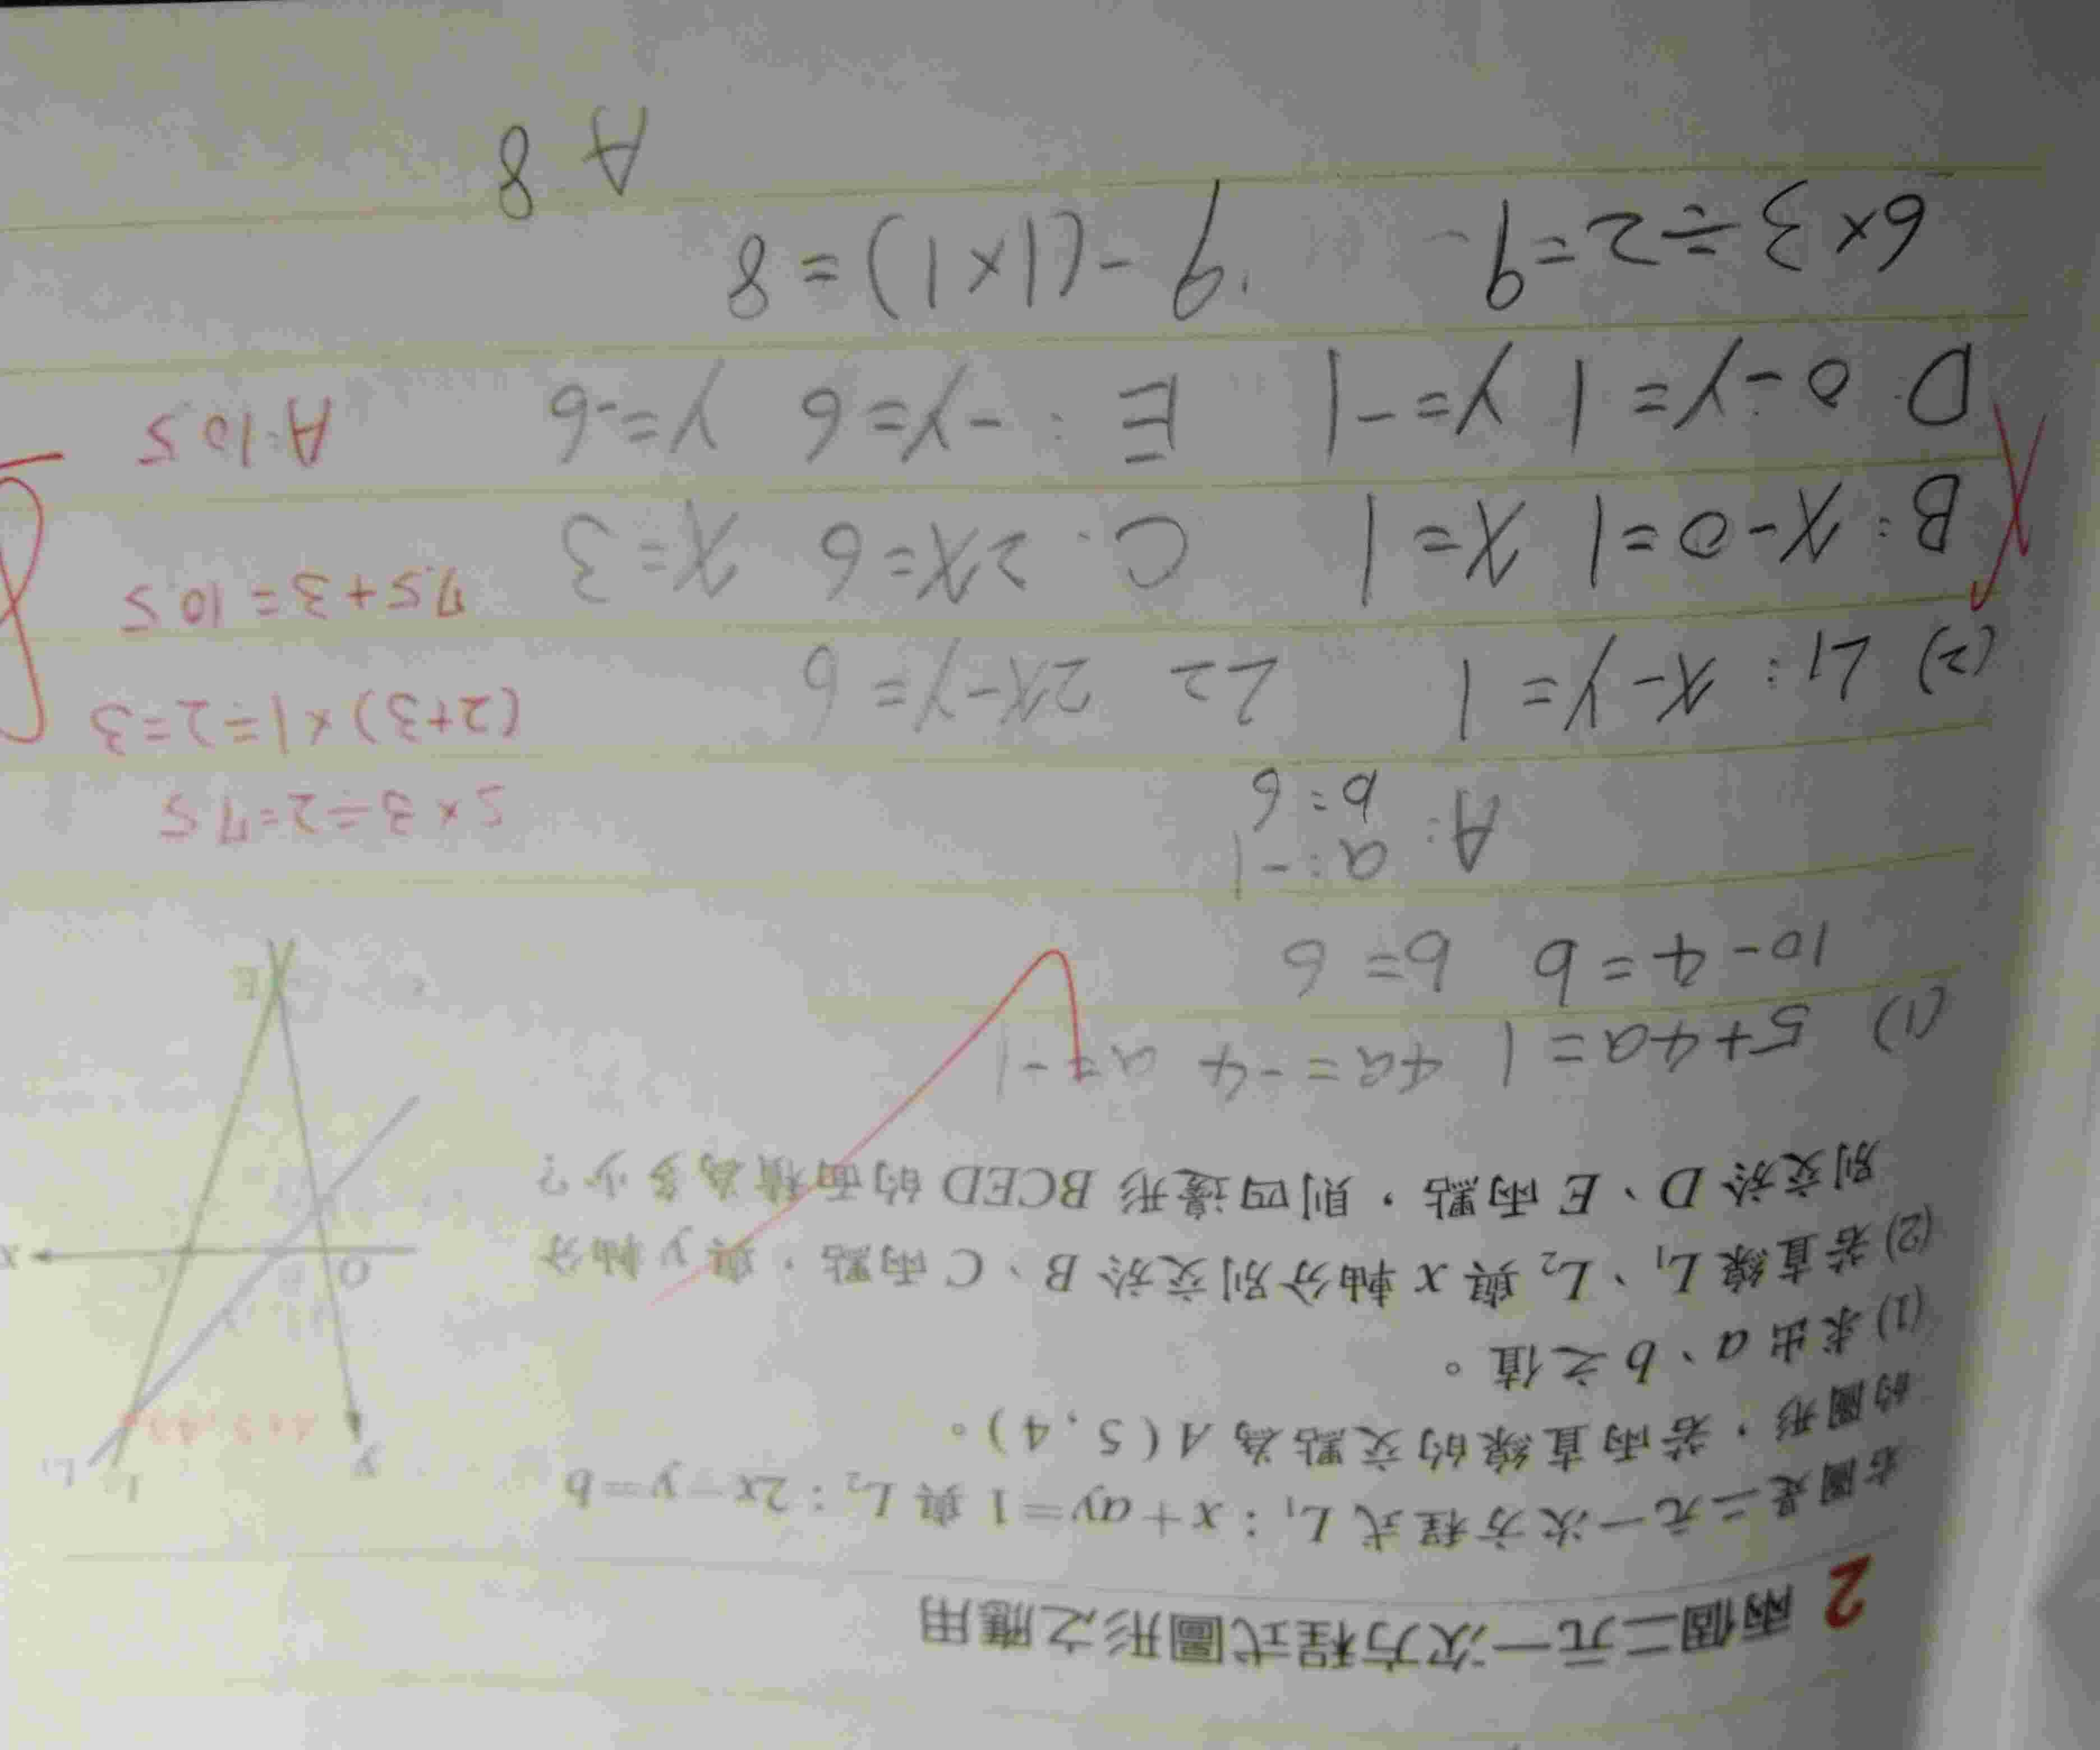 2 兩個二元一次方程式圖形之應用
右圖是二元一次方程式 L₁：x＋ay＝1 與 L₂：2x－y＝b
的圖形，若兩直線的交點為 A（5，4）。
(1) 求出 a、b 之值。
(2) 若直線 L₁、L₂ 與 x 軸分別交於 B、C 兩點，與 y 軸分
別交於 D、E 兩點，則四邊形 BCED 的面積為多少？
y
L₁
O B C x
E
(1) 5+4a=1 4a=-4 a=-1
10-4=b b=6
A: a=-1
b=6
5×3÷2=7.5
(2+3)×1÷2=3
7.5+3=10.5
A:10.5
(2) L1: x-y=1 L2 2x-y=6
B: x-0=1 x=1 C: 2x=6 x=3
D: 0-y=1 y=-1 E: -y=6 y=-6
6×3÷2=9 9-(1×1)=8
A 8